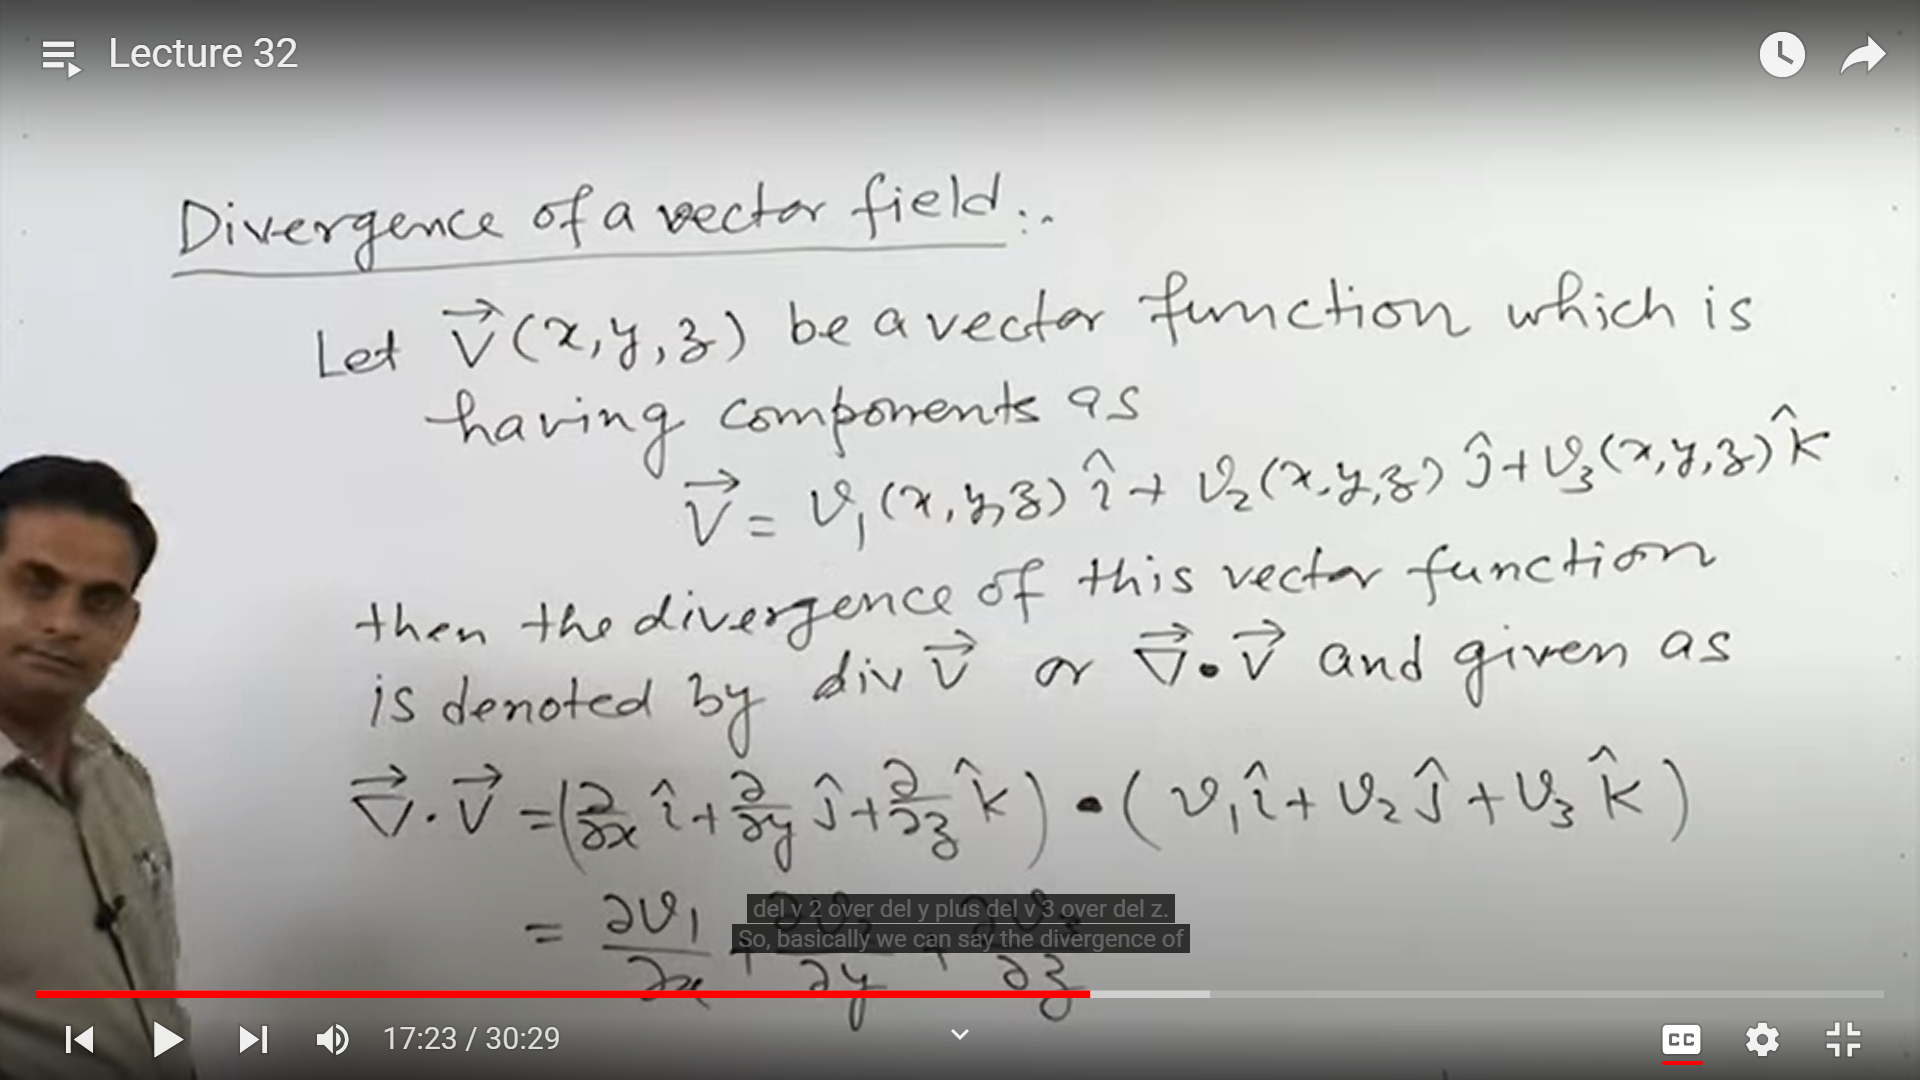 Lecture 32
Divergence of a vector field :-
Let V⃗(x,y,z) be a vector function which is
having components as
V⃗ = v₁(x,y,z) î + v₂(x,y,z) ĵ + v₃(x,y,z) k̂
then the divergence of this vector function
is denoted by div V⃗ or ∇⃗·V⃗ and given as
∇⃗·V⃗ = (∂/∂x î + ∂/∂y ĵ + ∂/∂z k̂) · (v₁î + v₂ĵ + v₃k̂)
= ∂v₁/∂x + ∂v₂/∂y + ∂v₃/∂z
del v 2 over del y plus del v 3 over del z.
So, basically we can say the divergence of
17:23 / 30:29
CC